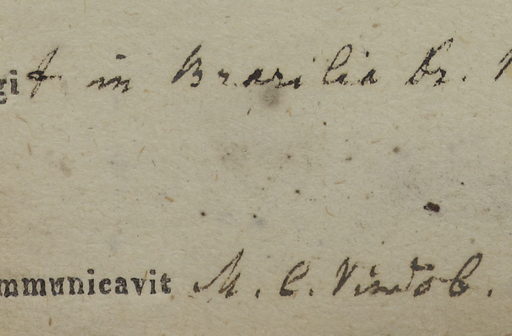 git in Brasilia Dr.
mmunicavit M. C. Vindob.